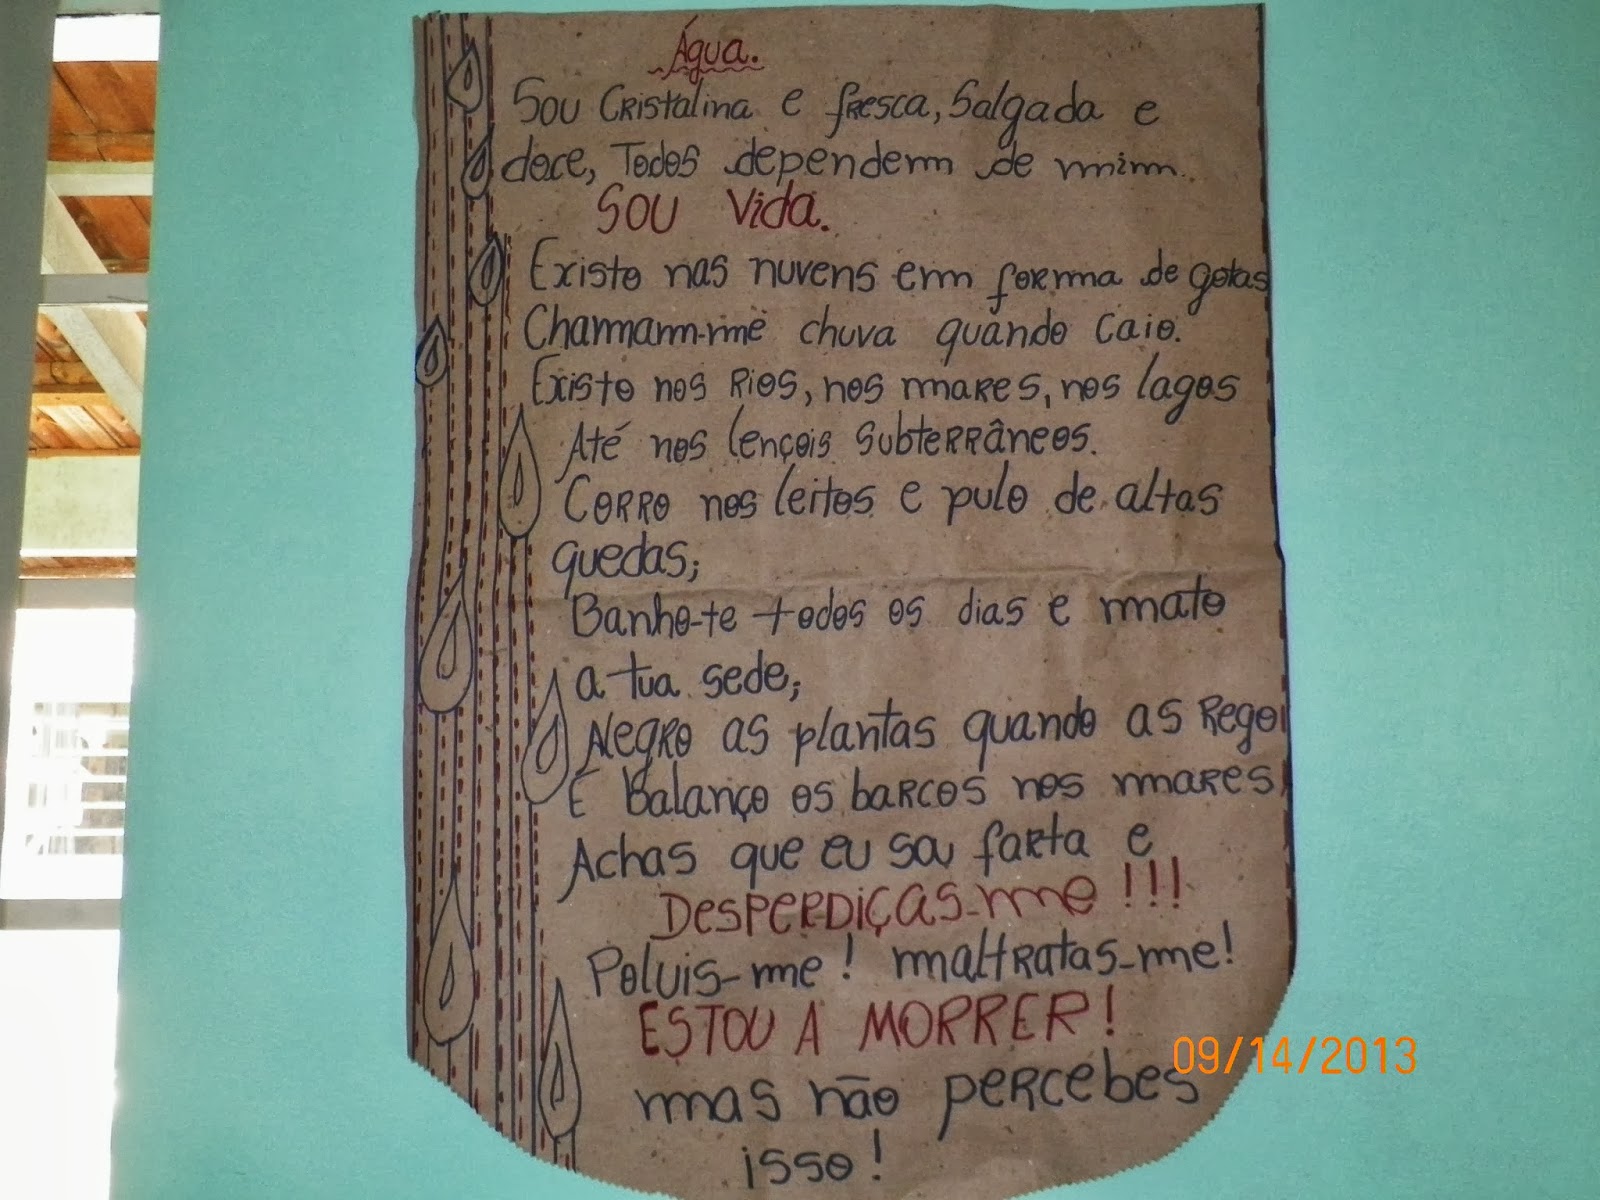 Água.
Sou Cristalina e fresca, Salgada e
doce, Todos dependem de mim.
Sou Vida.
Existo nas nuvens em forma de gotas
Chamam-me chuva quando caio.
Existo nos rios, nos mares, nos lagos
Até nos lençois subterrâneos.
Corro nos leitos e pulo de altas
quedas;
Banho-te todos os dias e mato
a tua sede;
Alegro as plantas quando as rego
E balanço os barcos nos mares
Achas que eu sou farta e
DESPERDIÇAS-me!!!
Poluis-me! maltratas-me!
ESTOU A MORRER!
mas não percebes
isso!
09/14/2013